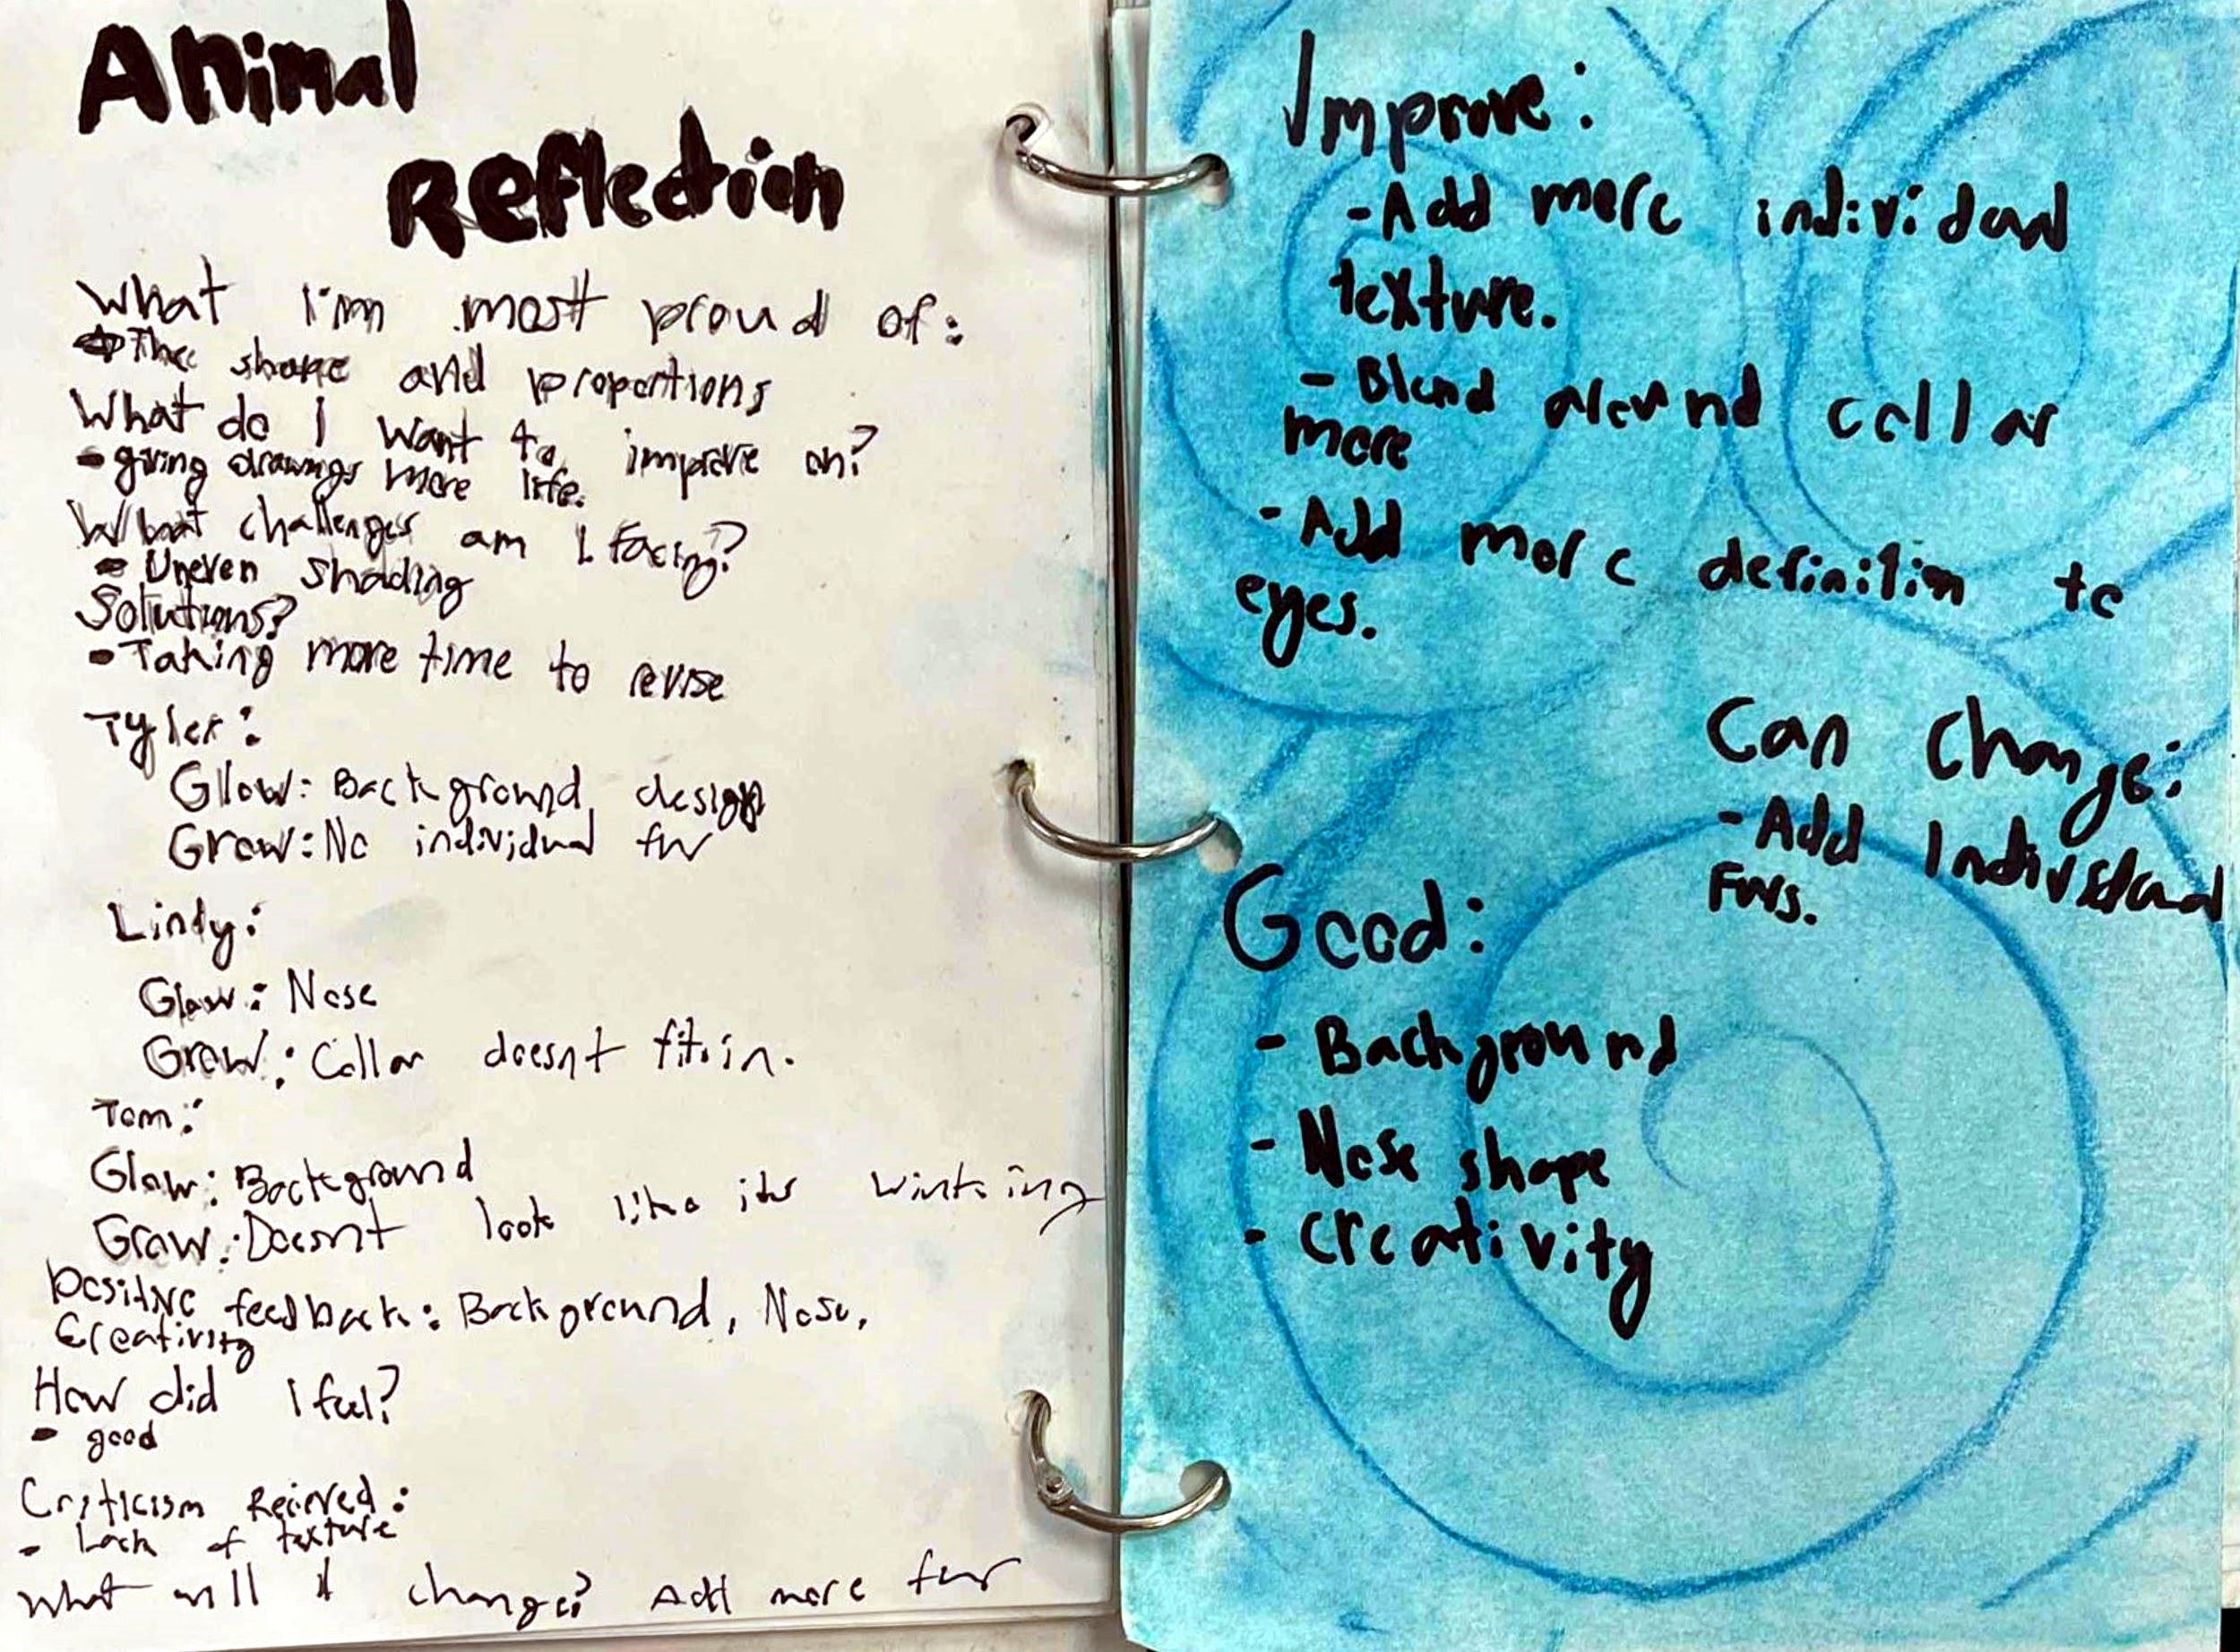 Animal
Reflection
What I'm most proud of:
The shape and proportions
What do I want to improve on?
- giving drawings more life.
What challenges am I facing?
- Uneven shading
Solutions?
- Taking more time to revise
Tyler:
Glow: Background design
Grow: No individual fur
Lindy:
Glow: Nose
Grow: Collar doesnt fit in.
Tom:
Glow: Background
Grow: Doesnt look like its winking
Positive feedback: Background, Nose,
Creativity
How did I feel?
- good
Criticism Recieved:
- Lack of texture
What will I change? Add more fur
Improve:
- Add more individual
texture.
- Blend around collar
more
- Add more definition to
eyes.
Can Change:
- Add Individual
Furs.
Good:
- Background
- Nose shape
- Creativity